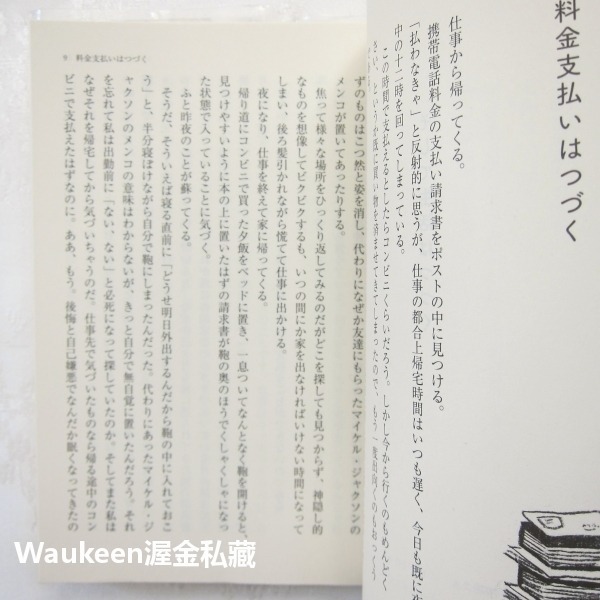 料金支払いはつづく
仕事から帰ってくる。
携帯電話料金の支払い請求書をポストの中に見つける。
「払わなきゃ」と反射的に思うが、仕事の都合上帰宅時間はいつも遅く、今日も既に
中の十二時を回ってしまっている。
この時間で支払えるとしたらコンビニくらいだろう。しかし今から行くのもめんどく
さい、というか既に買い物を済ませてきてしまったので、もう一度出向くのもおっくう
9 料金支払いはつづく
ずのものはこつ然と姿を消し、代わりになぜか友達にもらったマイケル・ジャクソンの
メンコが置いてあったりする。
焦って様々な場所をひっくり返してみるのだがどこを探しても見つからず、神隠し的
なものを想像してビクビクするも、いつの間にか家を出なければいけない時間になって
しまい、後ろ髪引かれながら慌てて仕事に出かける。
夜になり、仕事を終えて家に帰ってくる。
帰り道にコンビニで買った夕飯をベッドに置き、一息ついてなんとなく鞄を開けると、
見つけやすいように本の上に置いたはずの請求書が鞄の奥のほうでくしゃくしゃになっ
た状態で入っていることに気づく。
ふと昨夜のことが蘇ってくる。
そうだ、そういえば寝る直前に「どうせ明日外出するんだから鞄の中に入れておこ
う」と、半分寝ぼけながら自分で鞄にしまったんだった。代わりにあったマイケル・ジ
ャクソンのメンコの意味はわからないが、きっと自分で無自覚に置いたんだろう。それ
を忘れて私は出勤前に「ない、ない」と必死になって探していたのか。そしてまた私は
なぜそれを帰宅してから気づいちゃうのだ。仕事先で気づいたものなら帰る途中のコン
ビニで支払えたはずなのに。ああ、もう。後悔と自己嫌悪でなんだか眠くなってきたの
Waukeen渥金私藏